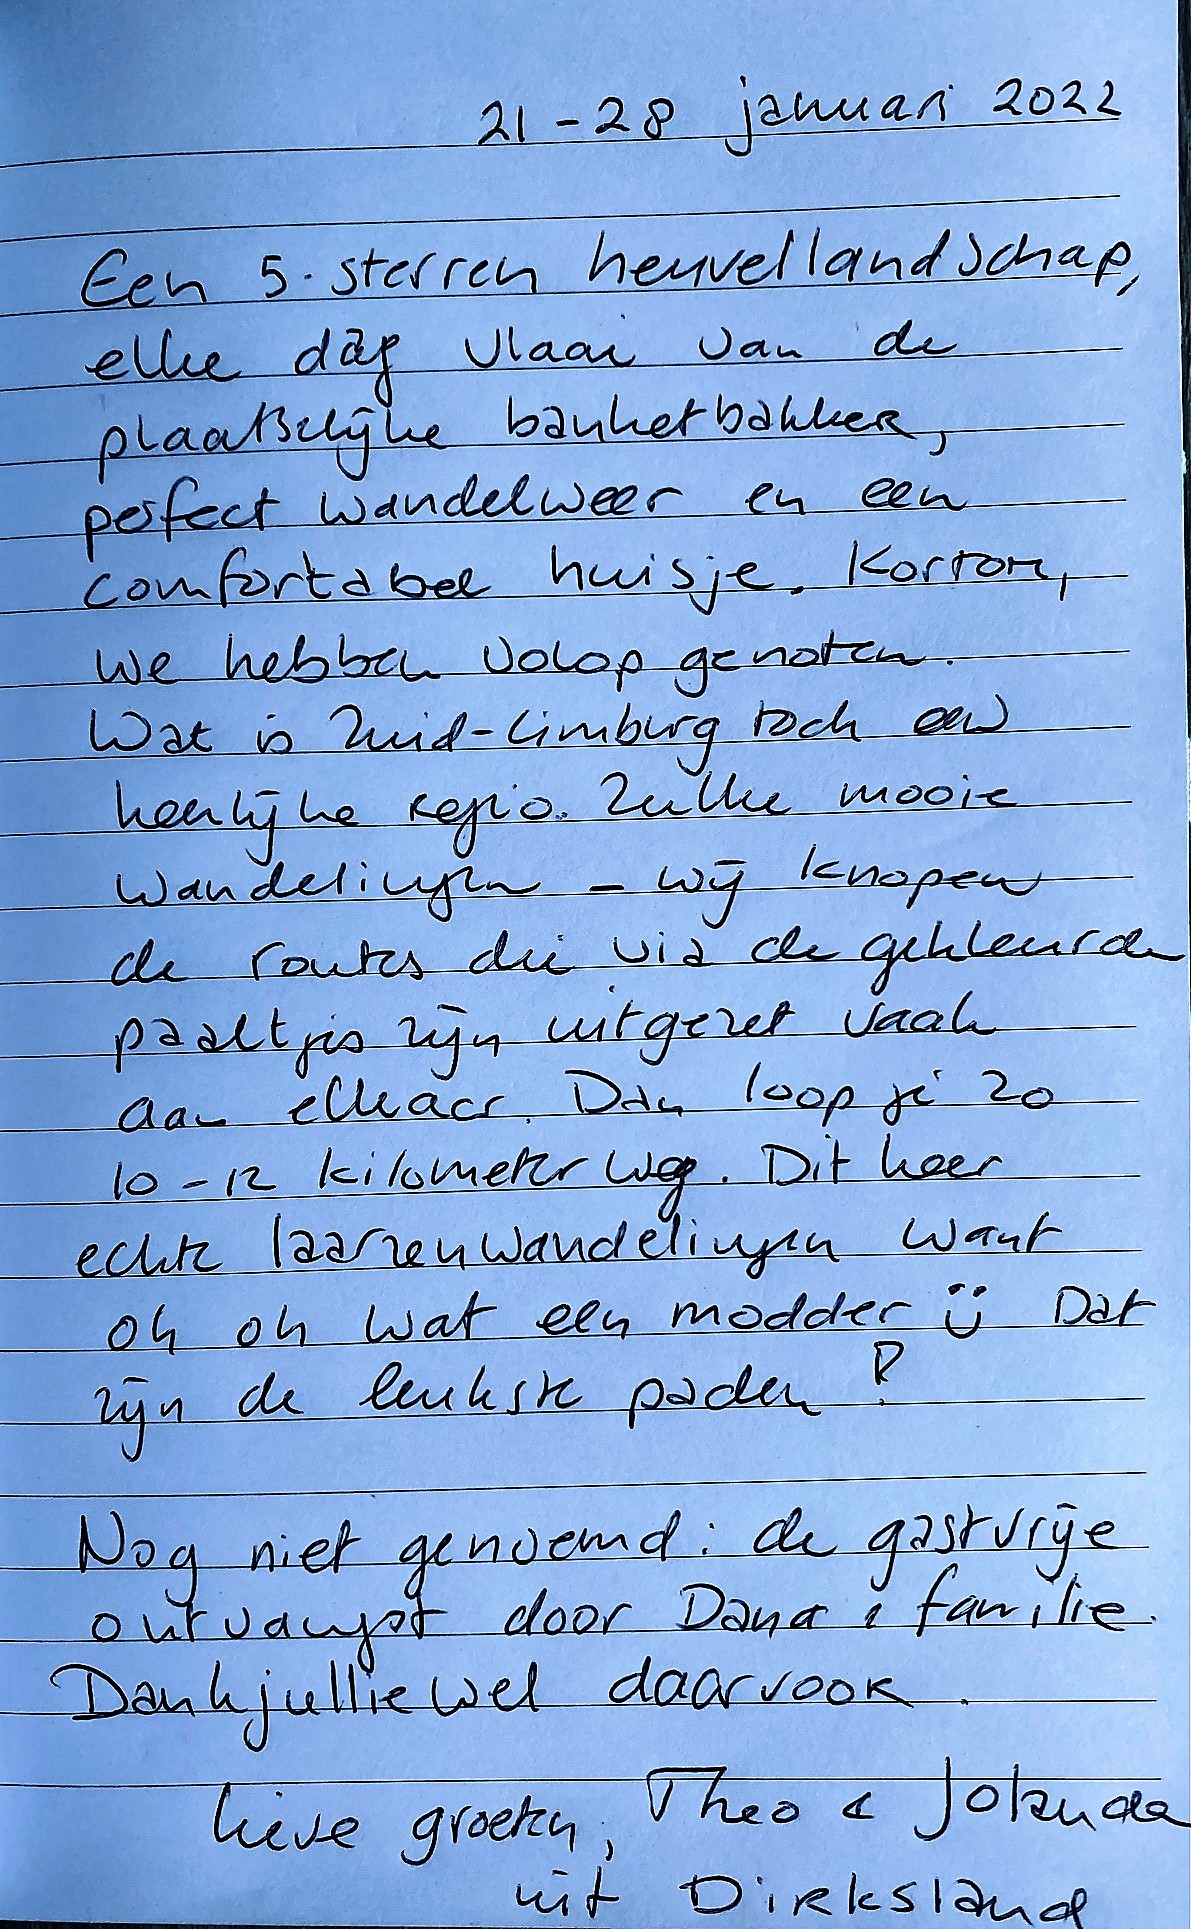 21 - 28 januari 2022
Een 5-sterren heuvellandschap,
elke dag vlaai van de
plaatselijke banketbakker,
perfect wandelweer en een
comfortabel huisje. Kortom,
we hebben volop genoten.
Wat is Zuid-Limburg toch een
heerlijke regio. Zulke mooie
wandelingen - wij knopen
de routes die via de gekleurde
paaltjes zijn uitgezet vaak
aan elkaar. Dan loop je zo
10 - 12 kilometer weg. Dit keer
echte laarzenwandelingen want
oh oh wat een modder ü Dat
zijn de leukste paden!
Nog niet genoemd: de gastvrije
ontvangst door Dana & familie.
Dankjulliewel daarvoor.
Lieve groeten, Theo & Jolanda
uit Dirksland